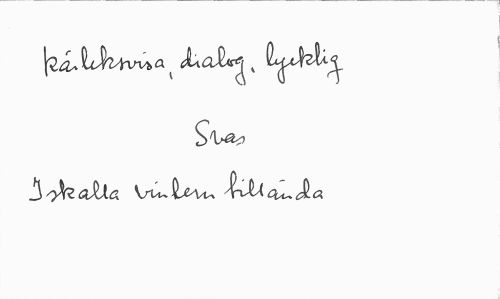 kärleksvisa, dialog, lycklig
Svas
Iskalla vintern tillända